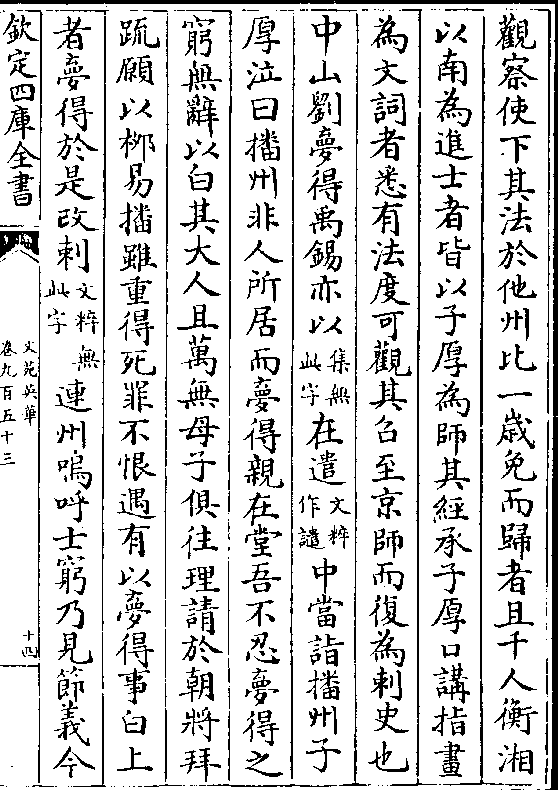 觀察使下其法於他州比一歳免而歸者且千人衡湘
以南為進士者皆以子厚為師其經承子厚口講指畫
為文詞者悉有法度可觀其召至京師而復為刺史也
中山劉夢得禹錫亦以集無此字在遣文粹作譴中當詣播州子
厚泣曰播州非人所居而夢得親在堂吾不忍夢得之
窮無辭以白其大人且萬無母子俱往理請於朝將拜
疏願以栁易播雖重得死罪不恨遇有以夢得事白上
者夢得於是改刺文粹無此字連州嗚呼士窮乃見節義今
欽定四庫全書
文苑英華
卷九百五十三
十四